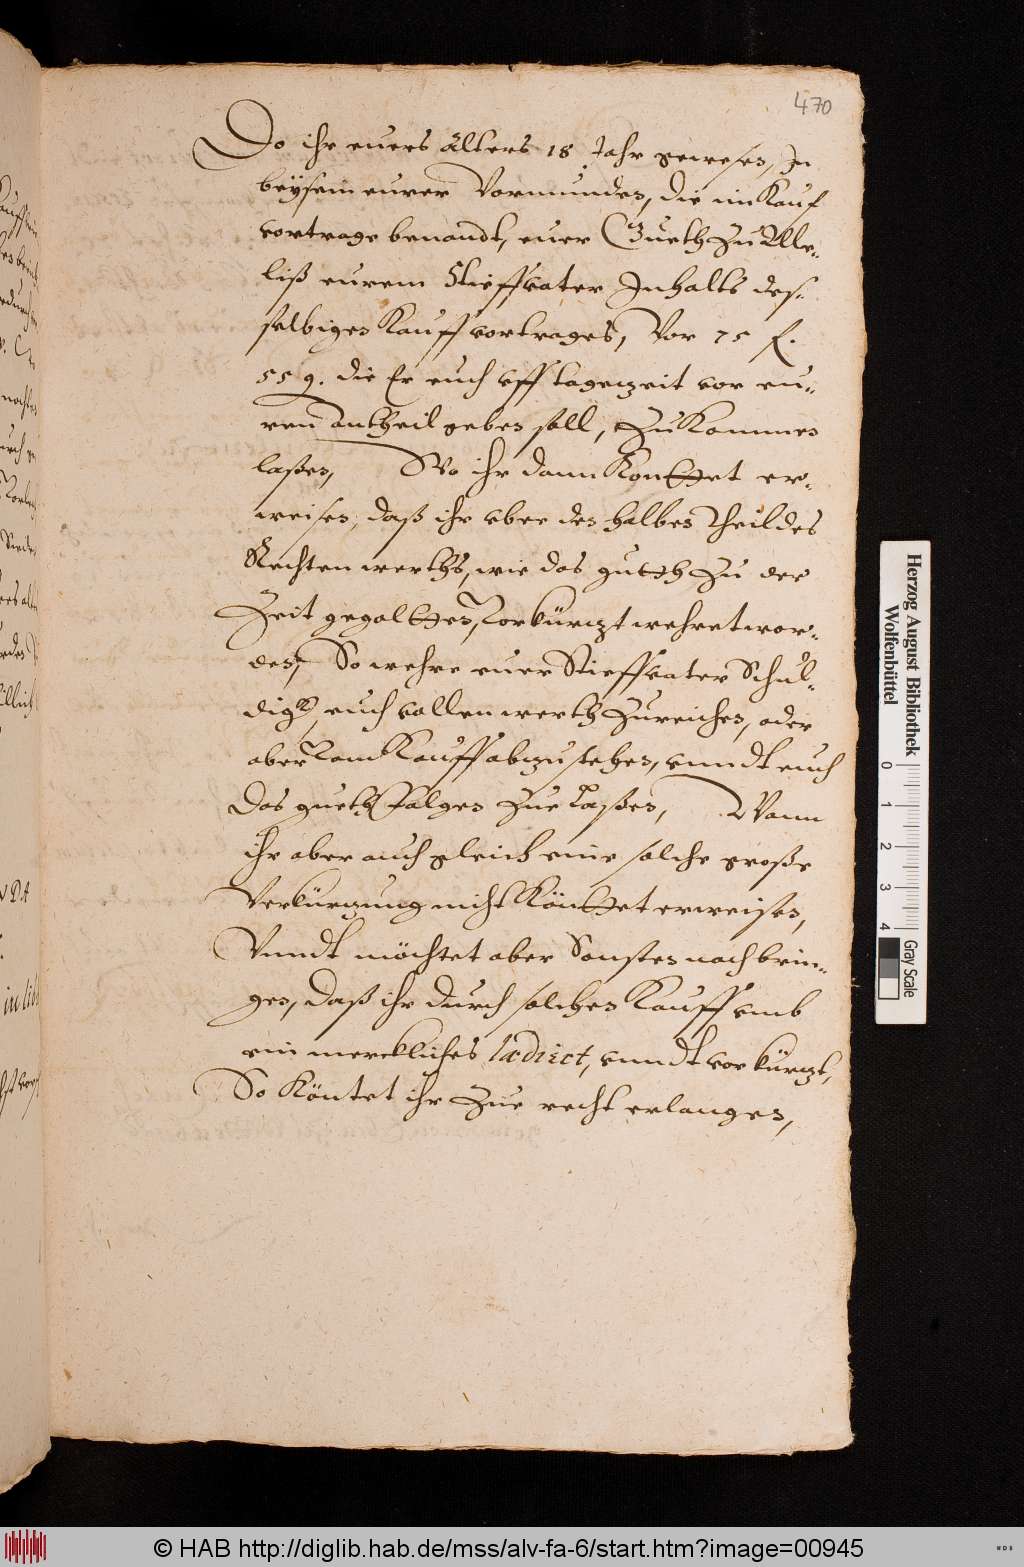 470
Do ihr euers alters 18 Jahr gewesen, In
beysein eurer Vormunden, die im Kauf
vortrage benandt, euer Gueth zu Alle-
liß eurem Stieffvater Inhalts des-
selbigen Kauffvortrages, Vor 75 f.
55 g. die Er euch vff tagezeit vor eu-
ren antheil geben soll, zu Kommen
laßen, Wo ihr dann Konttet er-
weisen, daß ihr vber den halben theil des
Rechten werths, wie das gutth zu der
Zeit gegoltten, Vorkürtzt wehret wor-
den, So wehre euer Stieffvater Schul-
dig, euch vollen werth zureichen, oder
aber Vom Kauff abzustehen, vnndt euch
das gueth folgen zue laßen, Wann
ihr aber auch gleich eine solche große
Verkürtzung nicht Könttet erweisen,
Vnndt möchtet aber Sonsten nach brin-
gen, daß ihr durch solchen Kauff vmb
ein merckliches lædirct, vnndt vorkürtzt,
So Köntet ihr zue recht erlangen,
Herzog August Bibliothek
Wolfenbüttel
0 1 2 3 4
Gray Scale
© HAB http://diglib.hab.de/mss/alv-fa-6/start.htm?image=00945